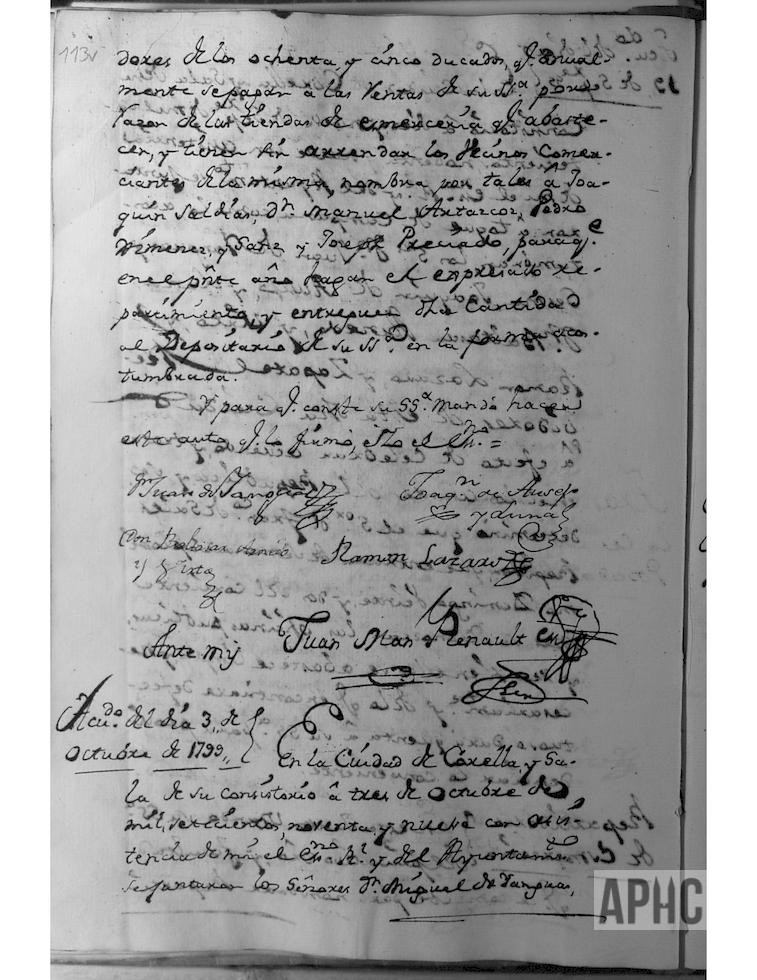 113v
dores de los ochenta, y cinco ducados, q.e anual-
mente se pagan à las Rentas de su SS.a por
razon de las tiendas de emercería q.e abaste-
cen, y tienen sin arrendar los vecinos Comer-
ciantes de la misma, nombra por tales a Joa-
quin Saldias, D.n Manuel, Pedro
Ximenez, y Sanz y Joseph Preciado, para q.e
en el pñte año hagan el expresado re-
partimiento, y entreguen dha Cantidad
al Depositario de su SS.a en la forma acos-
tumbrada.
Y para q.e conste su SS.a mandó hacer
este auto q.e lo firmó, é Yo el Es.no =
Joaq.n de
y Luna
Don Baltasar
Ramon Lazaro
Ante mi Juan Man.l Renault Es.no
Acu.do del día 3,, de
Octubre de 1799,,
En la Ciudad de Corella, y Sa-
la de su consistorio â tres de Octubre de
mil, setecientos, noventa, y nueve con asis-
tencia de mi el Es.no R.l y del Ayuntami.to
se juntaron los Señores D.n Miguel de Yanguas,
APHC